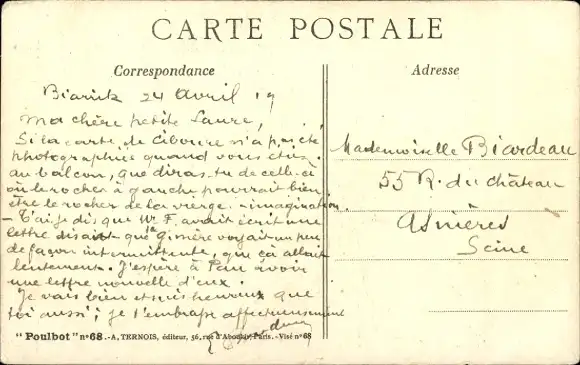 CARTE POSTALE
Correspondance
Adresse
Biarritz 24 Avril 19
Ma chère petite Laure,
Si la carte de Ciboure n'a pas été
photographiée quand vous étiez
au balcon, que diras-tu de celle-ci
où le rocher à gauche pourrait bien
être le rocher de la vierge - imagination.
- T'ai-je dis que Mr F. avait écrit une
lettre disant que voyait un peu
de façon intermittente, que ça allait
lentement. J'espère à Pau avoir
une lettre nouvelle d'eux.
Je vais bien et suis heureux que
toi aussi; je t'embrasse affectueusement
Mademoiselle Biardeau
55 R. du château
Asnières
Seine
"Poulbot" nº 68.-A. TERNOIS, éditeur, 56, rue d'Aboukir, Paris. - Visé nº 68